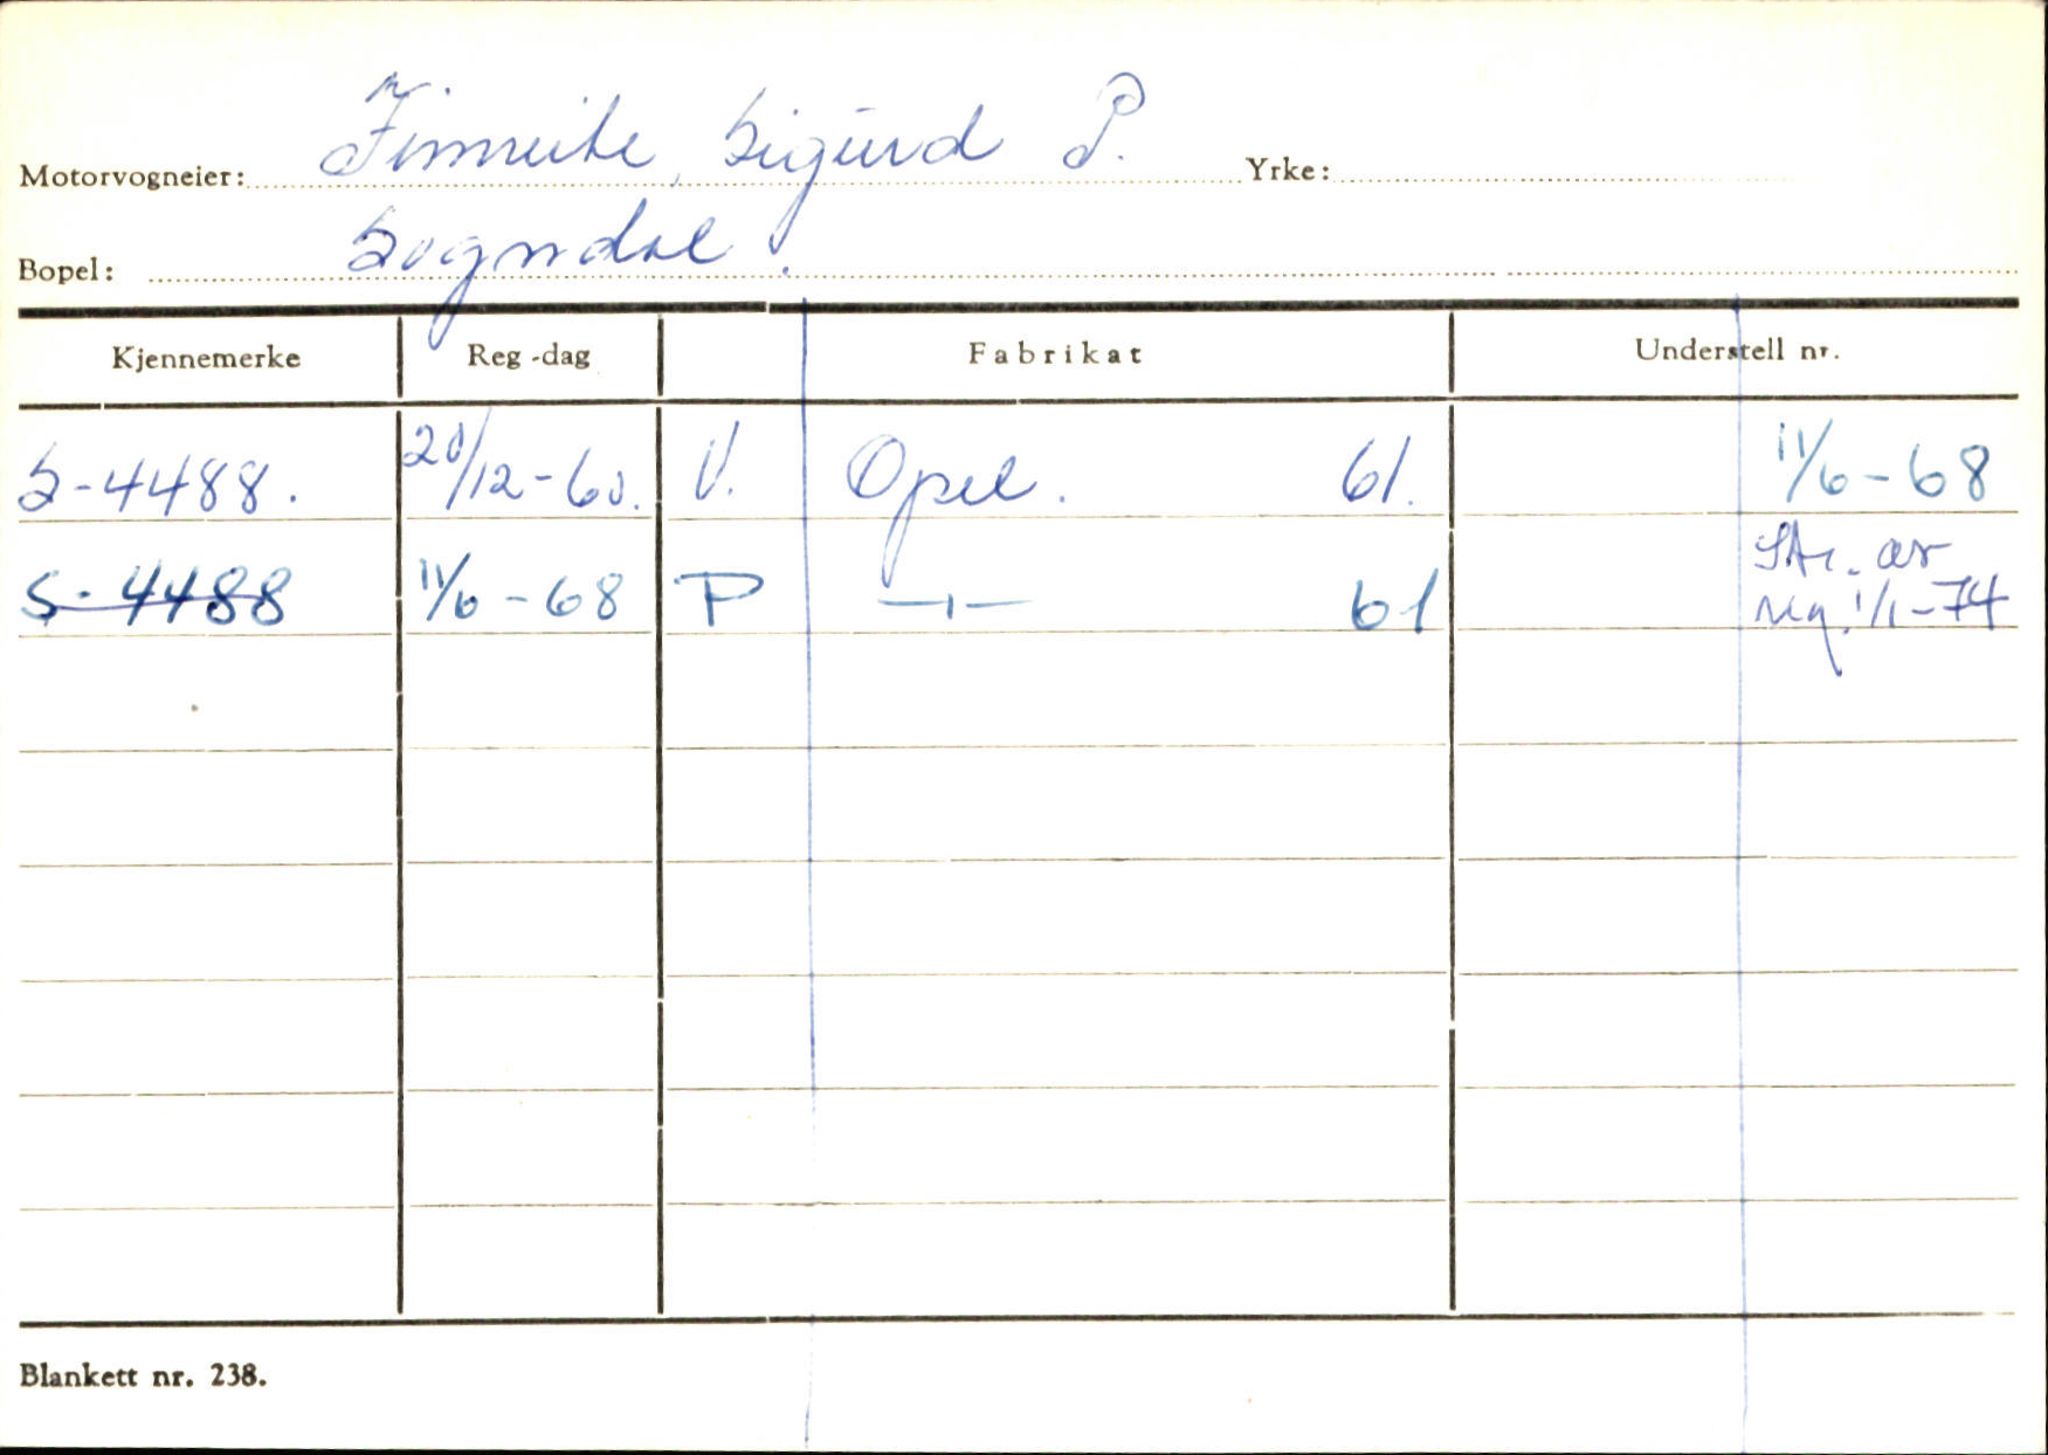 Motorvogneier: Finnreite, Sigurd P. Yrke:
Bopel: Sogndal.
Kjennemerke Reg-dag Fabrikat Understell nr.
S-4488. 20/12-60. V. Opel. 61. 11/6-68
S-4488 11/6-68 P —ı— 61 Str. av reg. 1/1-74
Blankett nr. 238.